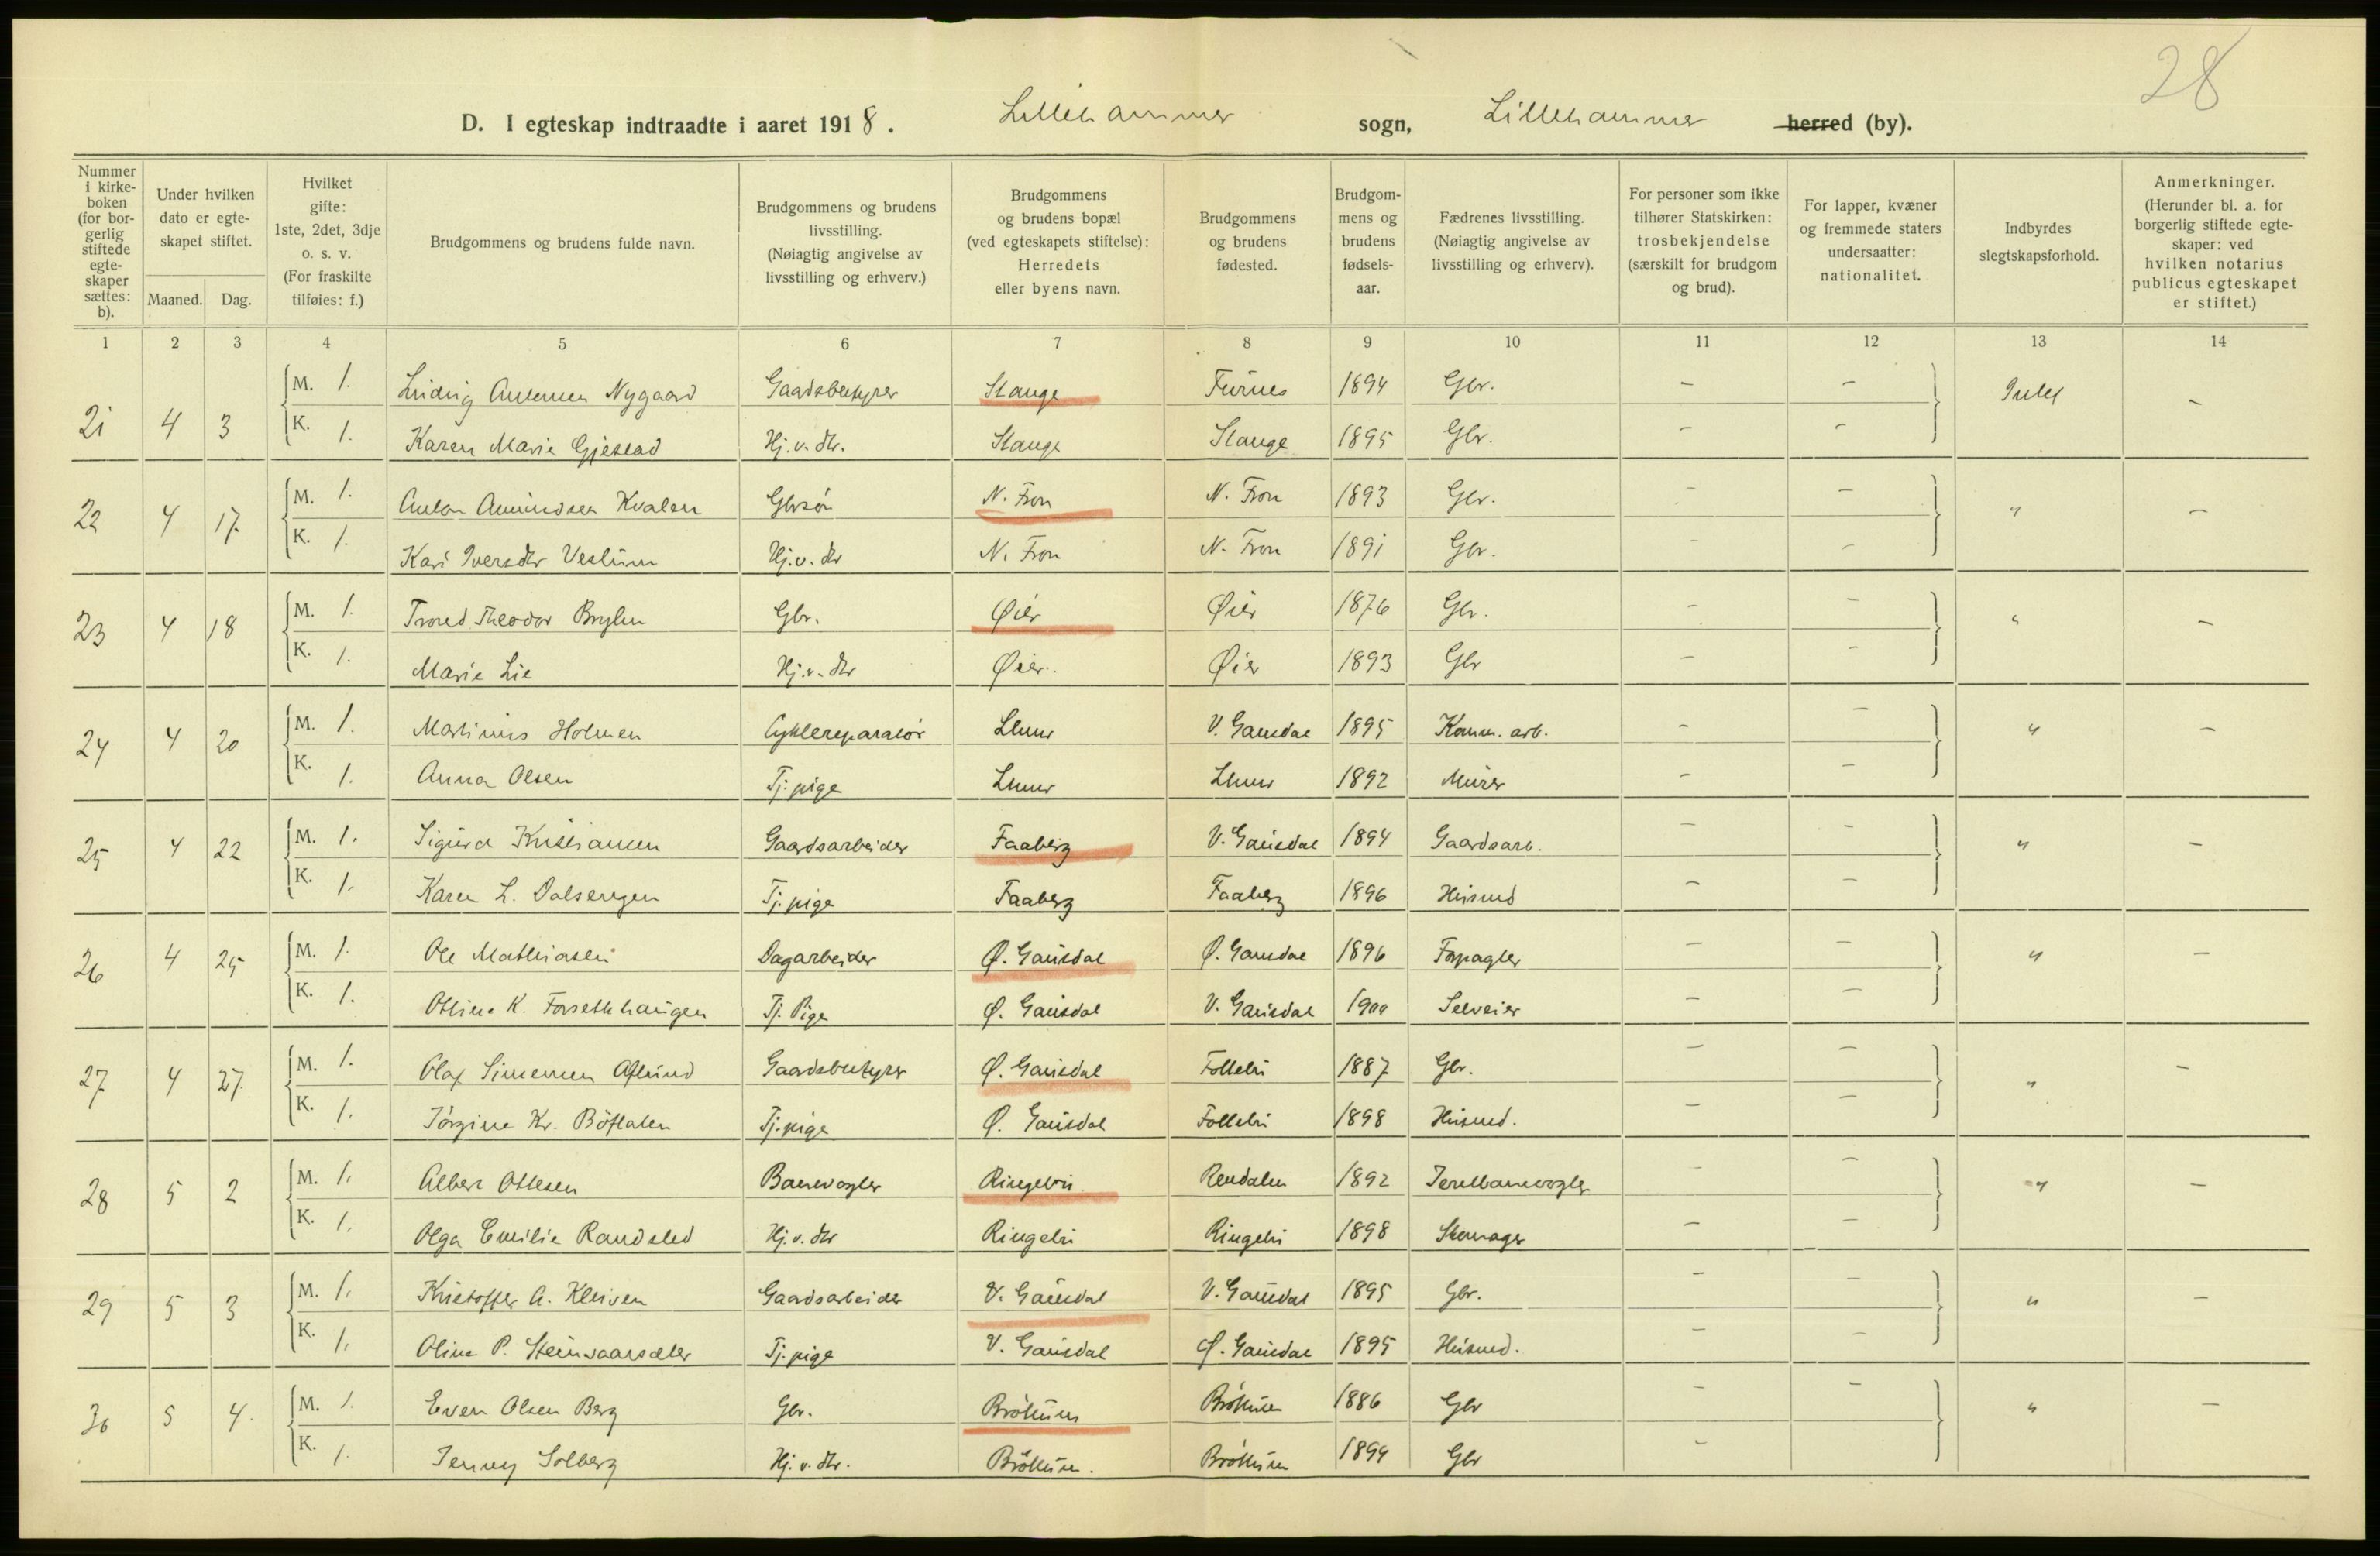 28
D. I egteskap indtraadte i aaret 1918. Lillehammer sogn, Lillehammer herred (by).
Nummer i kirkeboken (for borgerlig stiftede egteskaper sættes: b).
Under hvilken dato er egteskapet stiftet.
Maaned. Dag.
Hvilket gifte: 1ste, 2det, 3dje o. s. v. (For fraskilte tilføies: f.)
Brudgommens og brudens fulde navn.
Brudgommens og brudens livsstilling. (Nøiagtig angivelse av livsstilling og erhverv.)
Brudgommens og brudens bopæl (ved egteskapets stiftelse): Herredets eller byens navn.
Brudgommens og brudens fødested.
Brudgommens og brudens fødselsaar.
Fædrenes livsstilling. (Nøiagtig angivelse av livsstilling og erhverv).
For personer som ikke tilhører Statskirken: trosbekjendelse (særskilt for brudgom og brud).
For lapper, kvæner og fremmede staters undersaatter: nationalitet.
Indbyrdes slegtskapsforhold.
Anmerkninger. (Herunder bl. a. for borgerlig stiftede egteskaper: ved hvilken notarius publicus egteskapet er stiftet.)
1 2 3 4 5 6 7 8 9 10 11 12 13 14
21 4 3 M. 1. Ludvig Antonsen Nygaard Gaardsbestyrer Stange Furnes 1894 Gbr. – – Intet –
K. 1. Karen Marie Gjestad Hj.v. dtr. Stange Stange 1895 Gbr. – –
22 4 17 M. 1. Anton Amundsen Kvalen Gbrsøn N. Fron N. Fron 1893 Gbr. – – " –
K. 1. Kari Iversdtr Veslum Hj.v. dtr N. Fron N. Fron 1891 Gbr. – –
23 4 18 M. 1. Trond Theodor Brylen Gbr. Øier Øier 1876 Gbr. – – " –
K. 1. Marie Lie Hj.v. dtr Øier Øier 1893 Gbr – –
24 4 20 M. 1. Martinius Holmen Cyklereparatør Lhmr V. Gausdal 1895 Komm. arb. – – " –
K. 1. Anna Olsen Tj.pige Lhmr Lhmr 1892 Murer – –
25 4 22 M. 1. Sigurd Kristiansen Gaardsarbeider Faaberg V. Gausdal 1894 Gaardsarb. – – " –
K. 1. Karen L. Dalsengen Tj.pige Faaberg Faaberg 1896 Husmd – –
26 4 25 M. 1. Ole Mathiasen Dagarbeider Ø. Gausdal Ø. Gausdal 1896 Forpagter – – " –
K. 1. Otline K. Forsethhaugen Tj. Pige Ø. Gausdal V. Gausdal 1900 Selveier – –
27 4 27 M. 1. Olaf Simensen Aflund Gaardsbestyrer Ø. Gausdal Follebu 1887 Gbr. – – " –
K. 1. Jørgine Kr. Bøflaten Tj.pige Ø. Gausdal Follebu 1898 Husmd. – –
28 5 2 M. 1. Albert Ottesen Banevogter Ringebu Rendalen 1892 Jernbanevogter – – " –
K. 1. Olga Emilie Randsled Hj.v. dtr Ringebu Ringebu 1898 Skomager – –
29 5 3 M. 1. Kristoffer A. Kleiven Gaardsarbeider V. Gausdal V. Gausdal 1895 Gbr. – – " –
K. 1. Oline P. Steinvaarsæter Tj.pige V. Gausdal Ø. Gausdal 1895 Husmd. – –
30 5 4 M. 1. Even Olsen Berg Gbr. Brøttum Brøttum 1886 Gbr – – " –
K. 1. Jenny Solberg Hj.v. dtr. Brøttum. Brøttum 1894 Gbr –